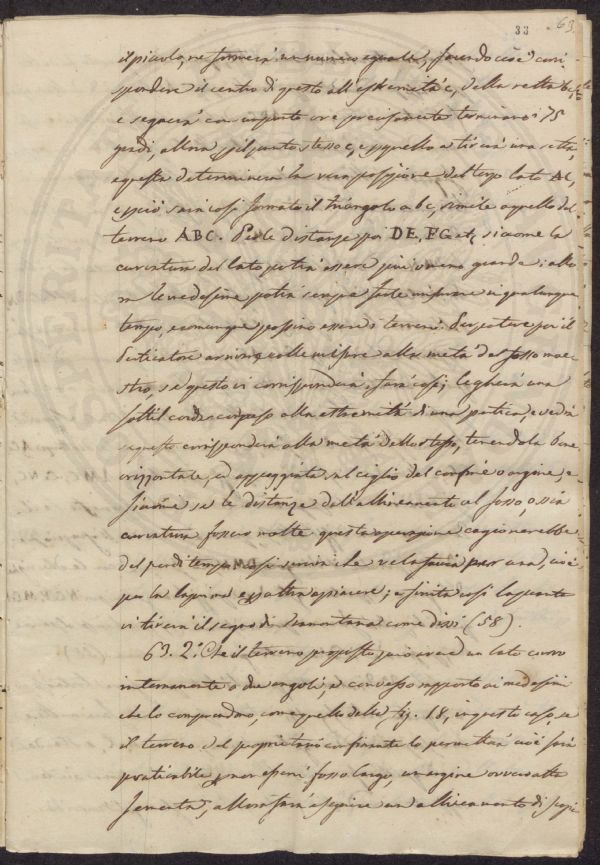 33 63
il piccolo, ne formerà un numero eguale, facendo cioè corri
spondere il centro di questo all'estremità c, della retta bc,
e segnerà con un punto ove precisamente terminano i 75
gradi; allora pel punto stesso c, e quello a tirerà una retta,
e questa determinerà la vera posizione del terzo lato AC,
e perciò sarà così formato il triangolo abc, simile a quello del
terreno ABC. Per le distanze poi DE, FG etc, siccome la
curvatura del lato potrà essere più o meno grande; allo
ra le medesime potrà sempre farle misurare in qualunque
tempo, e comunque possino essere i terreni. Per sapere poi il
Perticatore arrivi colle misure alla metà del fosso mae
stro, se questo vi corrisponderà, farà così; legherà una
sottil corda con peso alla estremità di una pertica, e vedrà
se questo corrisponderà alla metà dello stesso, tenendola bene
orizzontale, ed appoggiata sul ciglio del confine o argine; e
siccome se le distanze dell'allineamento al fosso, o sia
curvatura fossero molte questa operazione cagionerebbe
del perditempo, così servirà che ve la faccia per una, cioè
per la la prima e per altra a piacere; e finita così la pianta
vi tirerà il segno di Tramontana come dissi (58).
63. 2.° Che il terreno proposto poi avesse un lato curvo
internamente o due angoli, e convesso rapporto ai medesimi
che lo comprendono, come quello della fig. 18, in questo caso, se
il terreno del proprietario confinante lo permetterà cioè sarà
praticabile per non esservi fosso largo, un argine ovvero alta
sementa; allora farà eseguire un allineamento di scopi